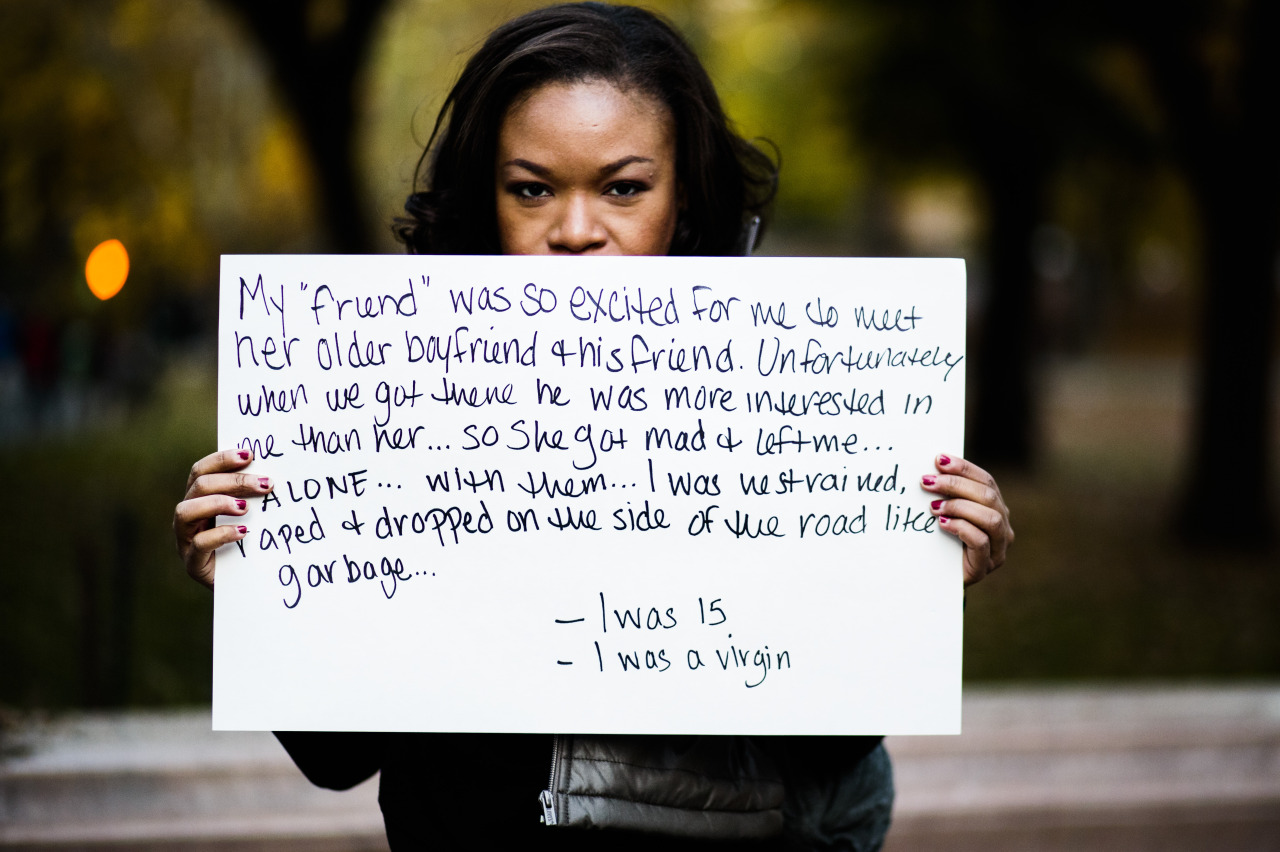 My "friend" was so excited for me to meet
her older boyfriend & his friend. Unfortunately
when we got there he was more interested in
me than her... so she got mad & left me...
ALONE... with them... I was restrained,
raped & dropped on the side of the road like
garbage...
- I was 15
- I was a virgin